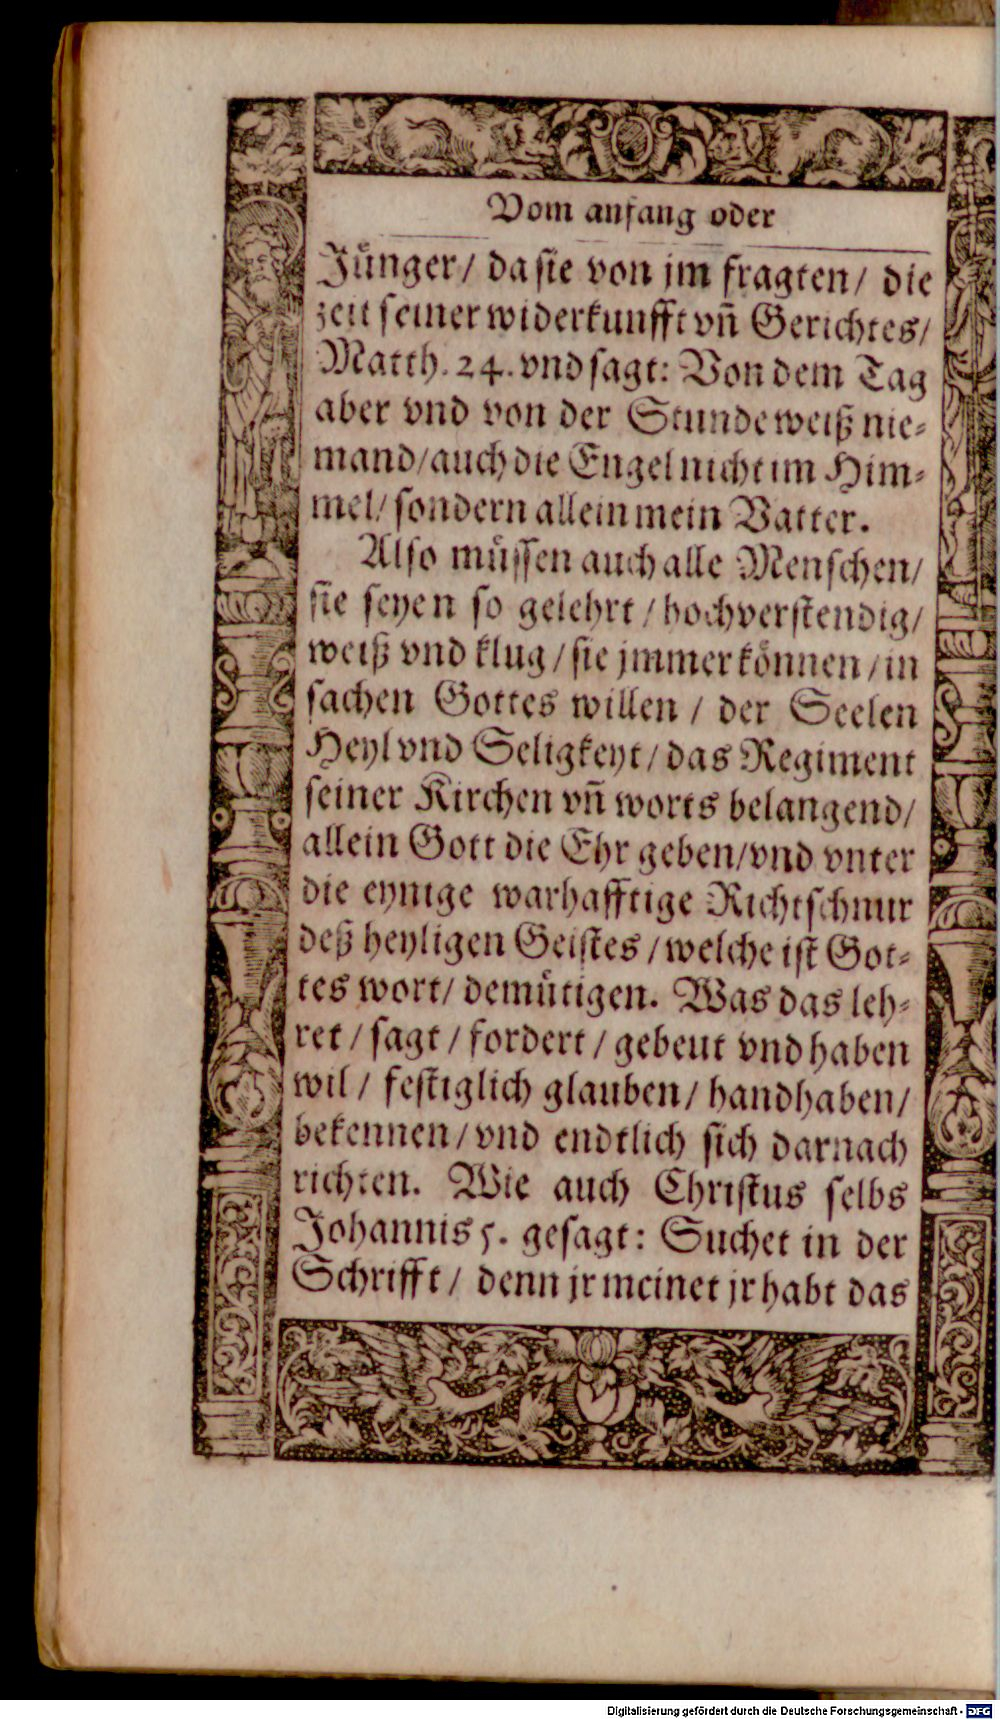 Vom anfang oder
Jůnger/ da sie von jm fragten/ die
zeit seiner widerkunfft vñ Gerichtes/
Matth. 24. vnd sagt: Von dem Tag
aber vnd von der Stunde weiß nie⸗
mand/ auch die Engel nicht im Him⸗
mel/ sondern allein mein Vatter.
Also můssen auch alle Menschen/
sie seyen so gelehrt/ hochverstendig/
weiß vnd klug/ sie jmmer koͤnnen/ in
sachen Gottes willen/ der Seelen
Heyl vnd Seligkeyt/ das Regiment
seiner Kirchen vñ worts belangend/
allein Gott die Ehr geben/ vnd vnter
die eynige warhafftige Richtschnur
deß heyligen Geistes/ welche ist Got⸗
tes wort/ demůtigen. Was das leh⸗
ret/ sagt/ fordert/ gebeut vnd haben
wil/ festiglich glauben/ handhaben/
bekennen/ vnd endtlich sich darnach
richten. Wie auch Christus selbs
Johannis 5. gesagt: Suchet in der
Schrifft/ denn jr meinet jr habt das
Digitalisierung gefördert durch die Deutsche Forschungsgemeinschaft - DFG